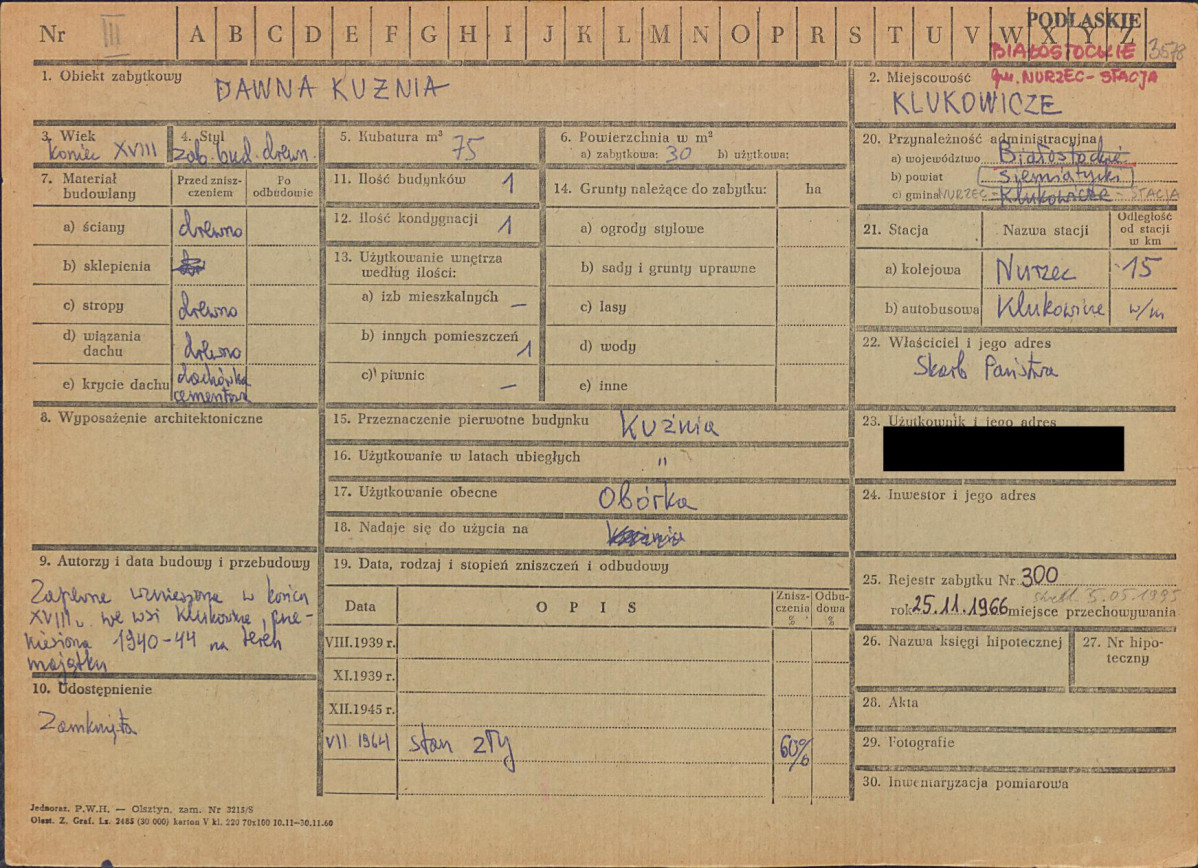 Nr III A B C D E F G H I J K L M N O P R S T U V W X Y Z
PODLASKIE
BIAŁOSTOCKIE 3578
gm. NURZEC-STACJA
1. Obiekt zabytkowy
DAWNA KUŹNIA
2. Miejscowość
KLUKOWICZE
3. Wiek
koniec XVIII
4. Styl
zab. bud. drewn.
5. Kubatura m³ 75
6. Powierzchnia w m²
a) zabytkowa: 30 b) użytkowa:
7. Materiał budowlany
Przed zniszczeniem
Po odbudowie
a) ściany drewno
b) sklepienia
c) stropy drewno
d) wiązania dachu drewno
e) krycie dachu dachówka cementowa
8. Wyposażenie architektoniczne
9. Autorzy i data budowy i przebudowy
Zapewne wzniesiona w końcu
XVIII w. we wsi Klukowicze, prze-
niesiona 1940-44 na teren
majątku
10. Udostępnienie
Zamknięta
11. Ilość budynków 1
12. Ilość kondygnacji 1
13. Użytkowanie wnętrza
według ilości:
a) izb mieszkalnych —
b) innych pomieszczeń 1
c) piwnic —
14. Grunty należące do zabytku: ha
a) ogrody stylowe
b) sady i grunty uprawne
c) lasy
d) wody
e) inne
15. Przeznaczenie pierwotne budynku Kuźnia
16. Użytkowanie w latach ubiegłych "
17. Użytkowanie obecne Obórka
18. Nadaje się do użycia na Kuźnia
19. Data, rodzaj i stopień zniszczeń i odbudowy
Data OPIS Zniszczenia % Odbudowa %
VIII.1939 r.
XI.1939 r.
XII.1945 r.
VII 1964 stan zły 60%
20. Przynależność administracyjna
a) województwo Białostockie
b) powiat siemiatycki
c) gmina NURZEC - Klukowicze - STACJA
21. Stacja Nazwa stacji Odległość od stacji w km
a) kolejowa Nurzec 15
b) autobusowa Klukowicze w/m
22. Właściciel i jego adres
Skarb Państwa
23. Użytkownik i jego adres
24. Inwestor i jego adres
25. Rejestr zabytku Nr 300
skreśl. 5.05.1995
rok 25.11.1966 miejsce przechowywania
26. Nazwa księgi hipotecznej
27. Nr hipoteczny
28. Akta
29. Fotografie
30. Inwentaryzacja pomiarowa
Jednoraz. P.W.H. — Olsztyn, zam. Nr 2215/S
Olszt. Z. Graf. Lz. 2485 (30 000) karton V kl. 220 70x100 10.11—30.11.60